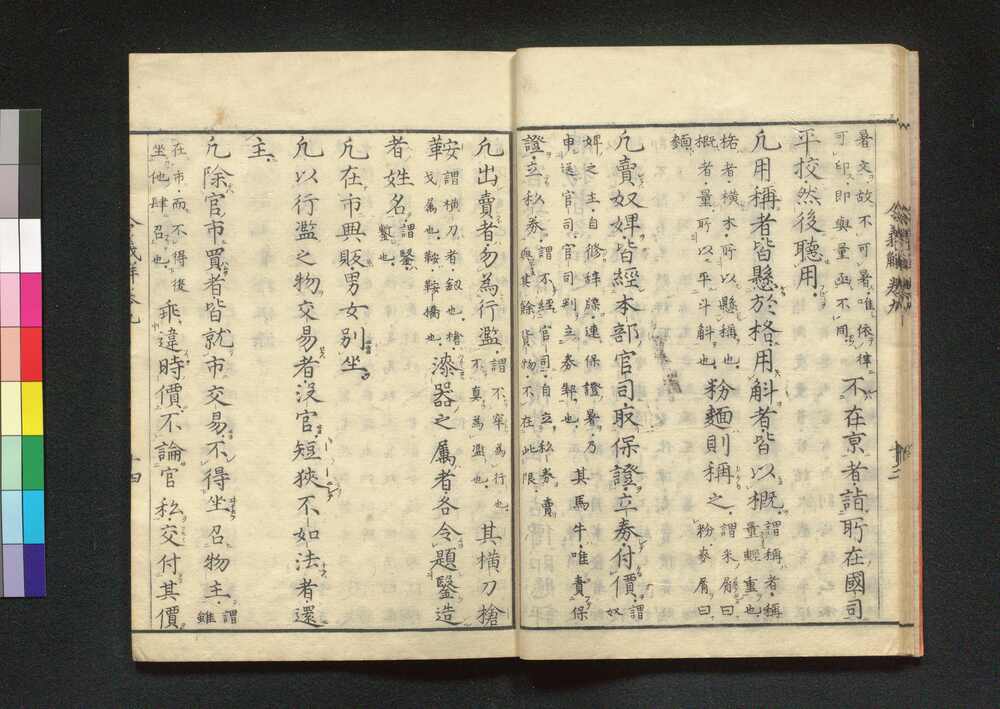 署文故不可署唯依律
可印即與量函不同
不在京者詣所在國司
平挍然後聽用
凡用稱者皆懸於格用斛者皆以概
謂稱者稱
量輕重也
格者横木所以懸稱也
概者量所以平斗斛也
粉麵則稱之
謂米屑曰
粉麥屑曰
麵
凡賣奴婢皆經本部官司取保證立券付價
謂
奴
婢之主自修辞牒連保證署乃
申送官司官司判立券契也
其馬牛唯責保
證立私券
謂不經官司自立私券賣
與其餘貨物不在此限
凡出賣者勿為行濫
謂不牢為行也
不真為濫也
其横刀槍
鞌
謂横刀者釼也槍
戈屬也鞍鞍橋也
漆器之屬者各令題鑿造
者姓名
凡在市興販男女別坐
凡以行濫之物交易者没官短狹不如法者還
主
凡除官市買者皆就市交易不得坐召物主
謂
雖
在市而不得後
坐他肆召也
乖違時價不論官私交付其價
十四